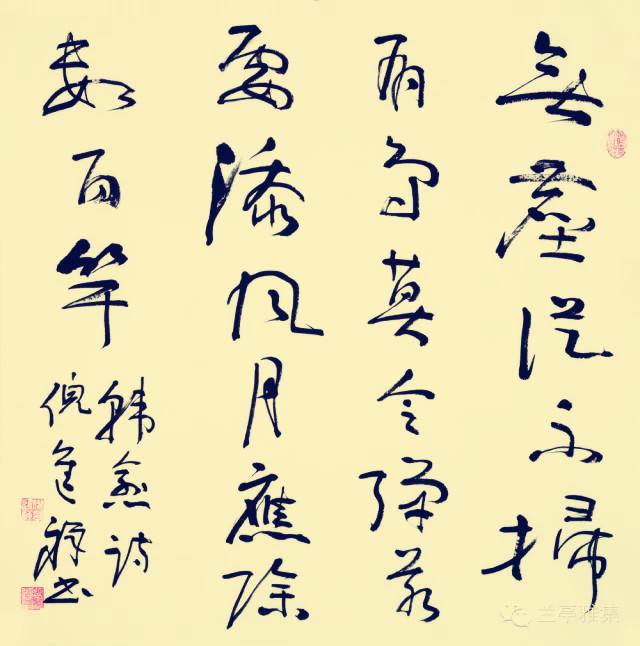 無塵從不掃
有鳥莫令彈若
要添風月應除
數百竿
韓愈詩
倪進祥書
兰亭雅集